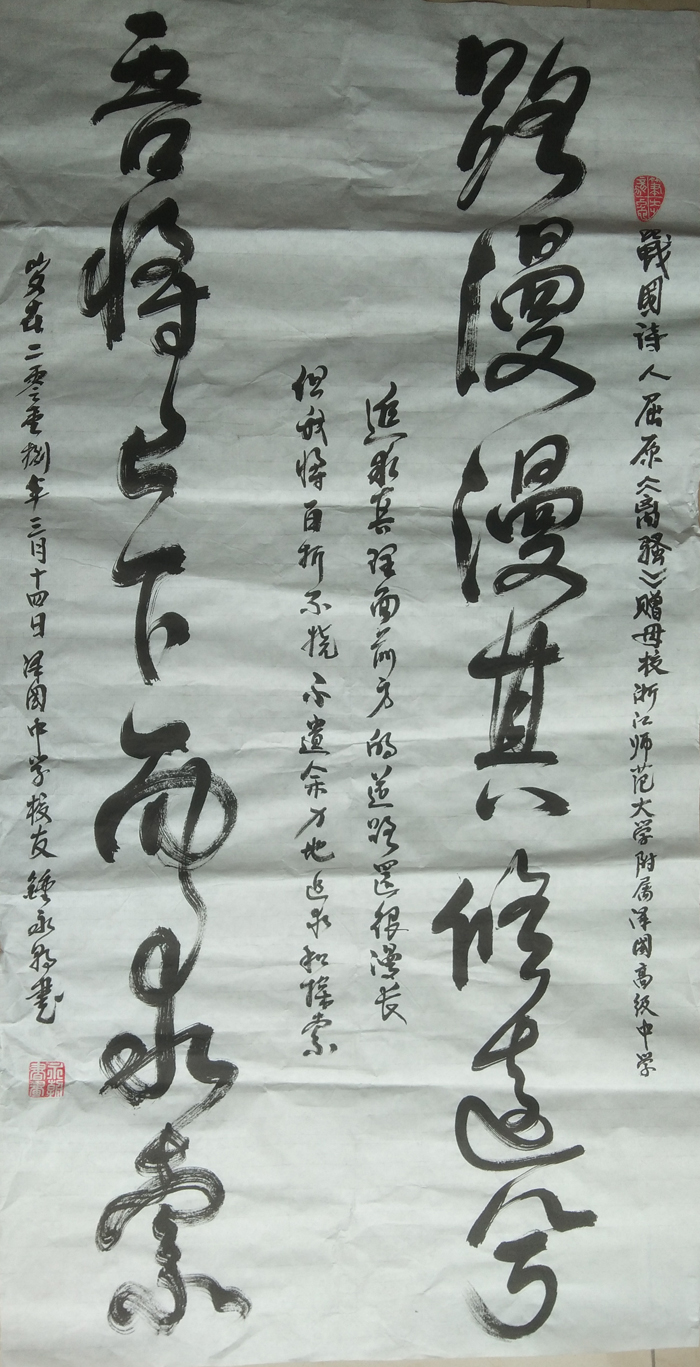 戰国诗人屈原《离骚》赠母校浙江师范大学附属泽国高级中学
路漫漫其修遠兮
追求真理面前方的道路還很漫长
但我将百折不挠不遗余力地追求和探索
吾将上下而求索
岁在二零壹捌年三月十四日泽国中学校友鍾永書